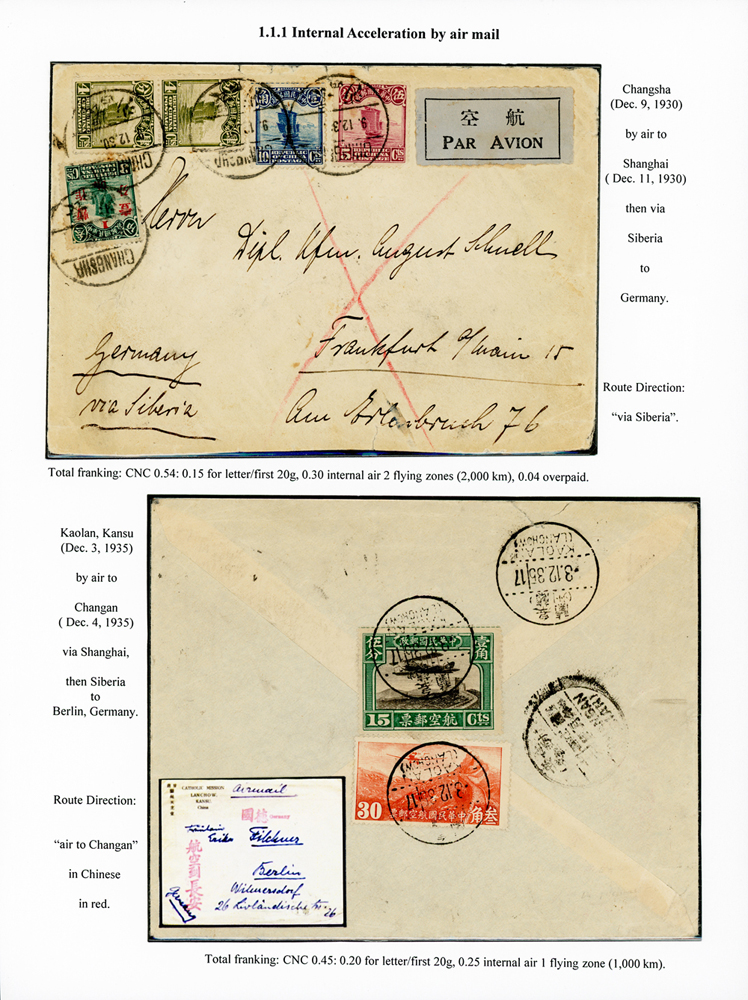 1.1.1 Internal Acceleration by air mail
Changsha
(Dec. 9, 1930)
by air to
Shanghai
( Dec. 11, 1930)
then via
Siberia
to
Germany.
Route Direction:
“via Siberia”.
空 航
PAR AVION
CHANGSHA
CHANGSHA
Herrn
Dipl. Kfm. August Schnell
Frankfurt a/main 15
Am Erlenbruch 76
Germany
via Siberia
Total franking: CNC 0.54: 0.15 for letter/first 20g, 0.30 internal air 2 flying zones (2,000 km), 0.04 overpaid.
Kaolan, Kansu
(Dec. 3, 1935)
by air to
Changan
( Dec. 4, 1935)
via Shanghai,
then Siberia
to
Berlin, Germany.
Route Direction:
“air to Changan”
in Chinese
in red.
KAOLAN
(LANCHOW)
3.12.35 17
蘭皋
伍分 政郵國民華中 壹角
15 票郵空航 Cts
KAOLAN
(LANCHOW)
3.12.35 17
30 票郵空航國民華中 叁角
CATHOLIC MISSION
LANCHOW,
KANSU
China
Airmail
國德
Germany
Fräulein
Erika Filchner
Berlin
Wilmersdorf
26 Livländische Str. 26
Germany
航空圖長安
Total franking: CNC 0.45: 0.20 for letter/first 20g, 0.25 internal air 1 flying zone (1,000 km).